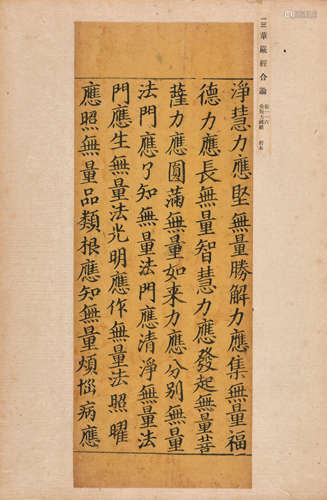 三 華嚴經合論
淨慧力應堅無量勝解力應集無量福
德力應長無量智慧力應發起無量菩
薩力應圓滿無量如来力應分別無量
法門應了知無量法門應清淨無量法
門應生無量法光明應作無量法照曜
應照無量品類根應知無量煩惱病應